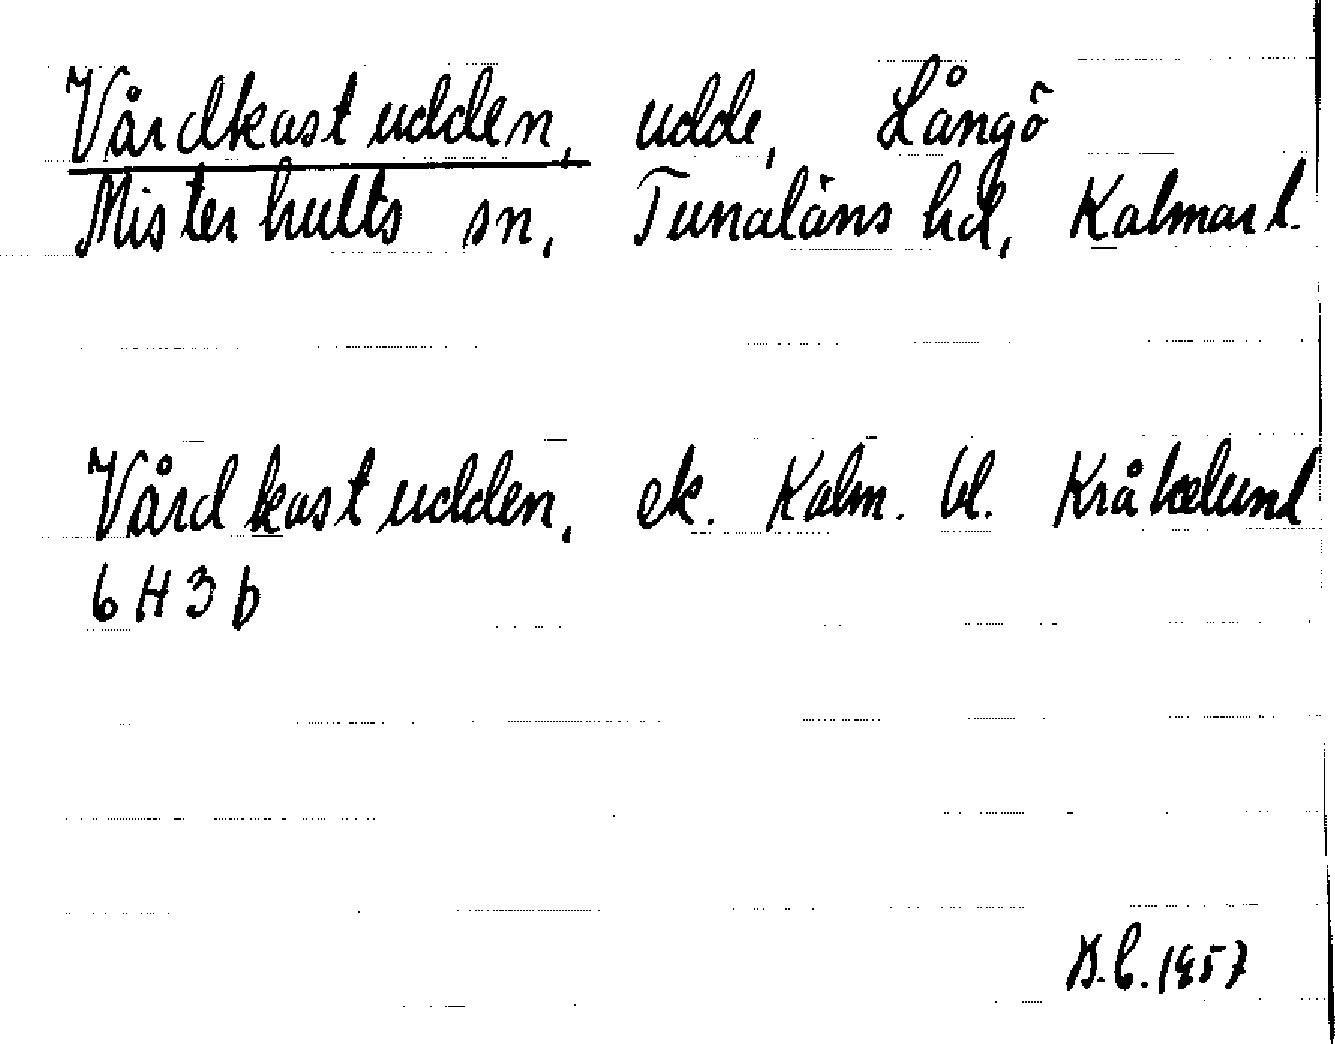 Vårdkastudden, udde, Långö
Misterhults sn, Tunaläns hd, Kalmar l.
Vårdkastudden, ek. Kalm. bl. Kråkelund
6 H 3 b
1957